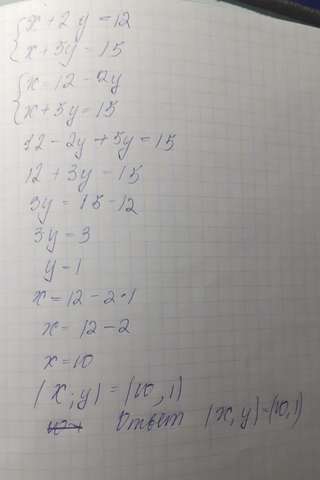 {x+2y=12
x+5y=15
{x=12-2y
x+5y=15
12-2y+5y=15
12+3y=15
3y=15-12
3y=3
y=1
x=12-2·1
x=12-2
x=10
(x;y)=(10,1)
Ответ (x,y)=(10,1)